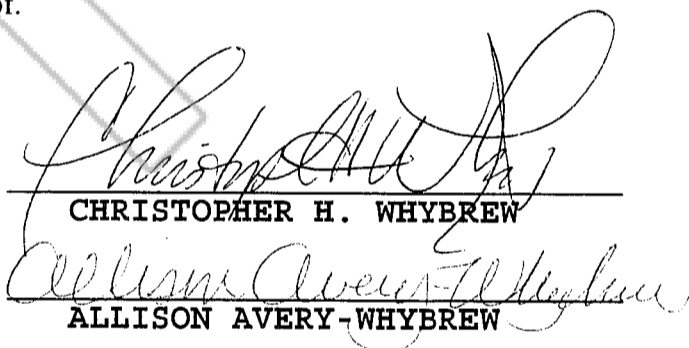 or.
Christopher H Why
CHRISTOPHER H. WHYBREW
Allison Avery-Whybrew
ALLISON AVERY-WHYBREW